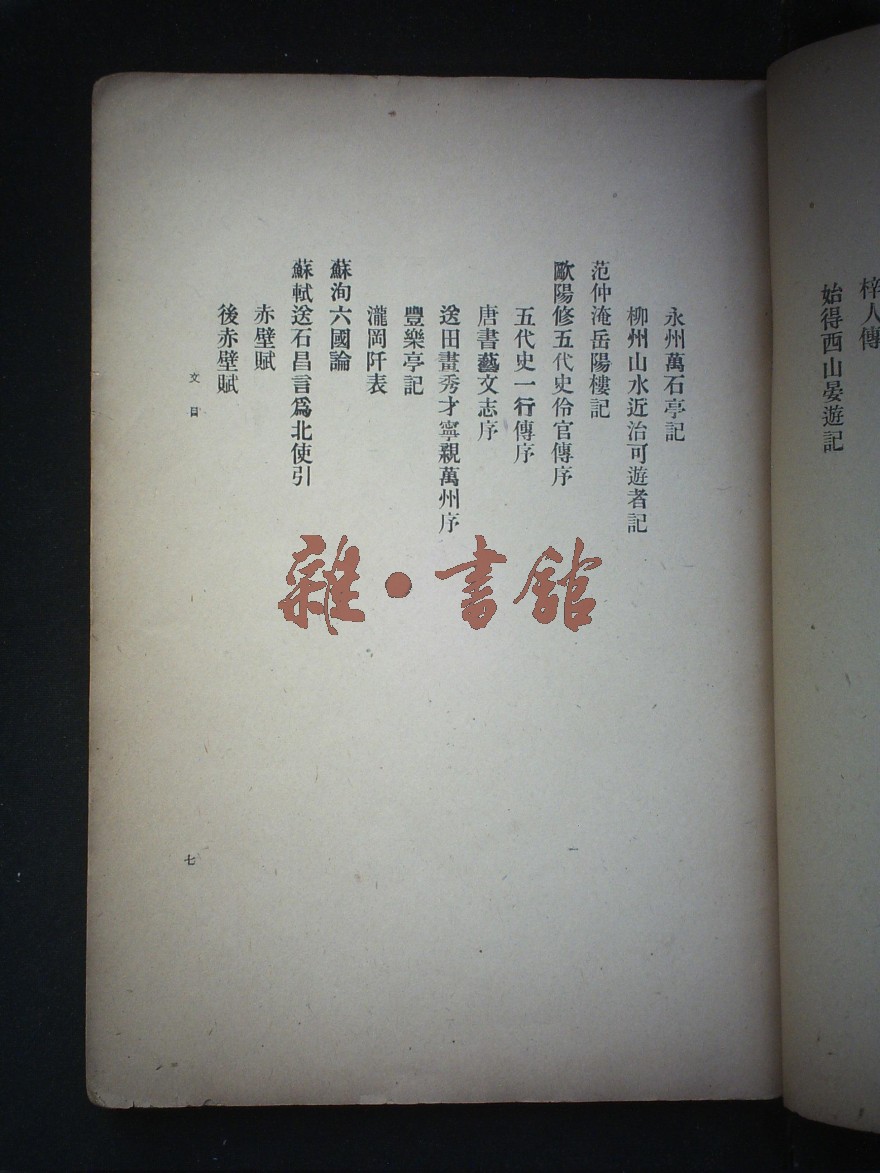 梓人傳
始得西山宴遊記
永州萬石亭記
柳州山水近治可遊者記
范仲淹岳陽樓記
歐陽修五代史伶官傳序
五代史一行傳序
唐書藝文志序
送田畫秀才寧親萬州序
豐樂亭記
瀧岡阡表
蘇洵六國論
蘇軾送石昌言爲北使引
赤壁賦
後赤壁賦
文目
七
雜·書館